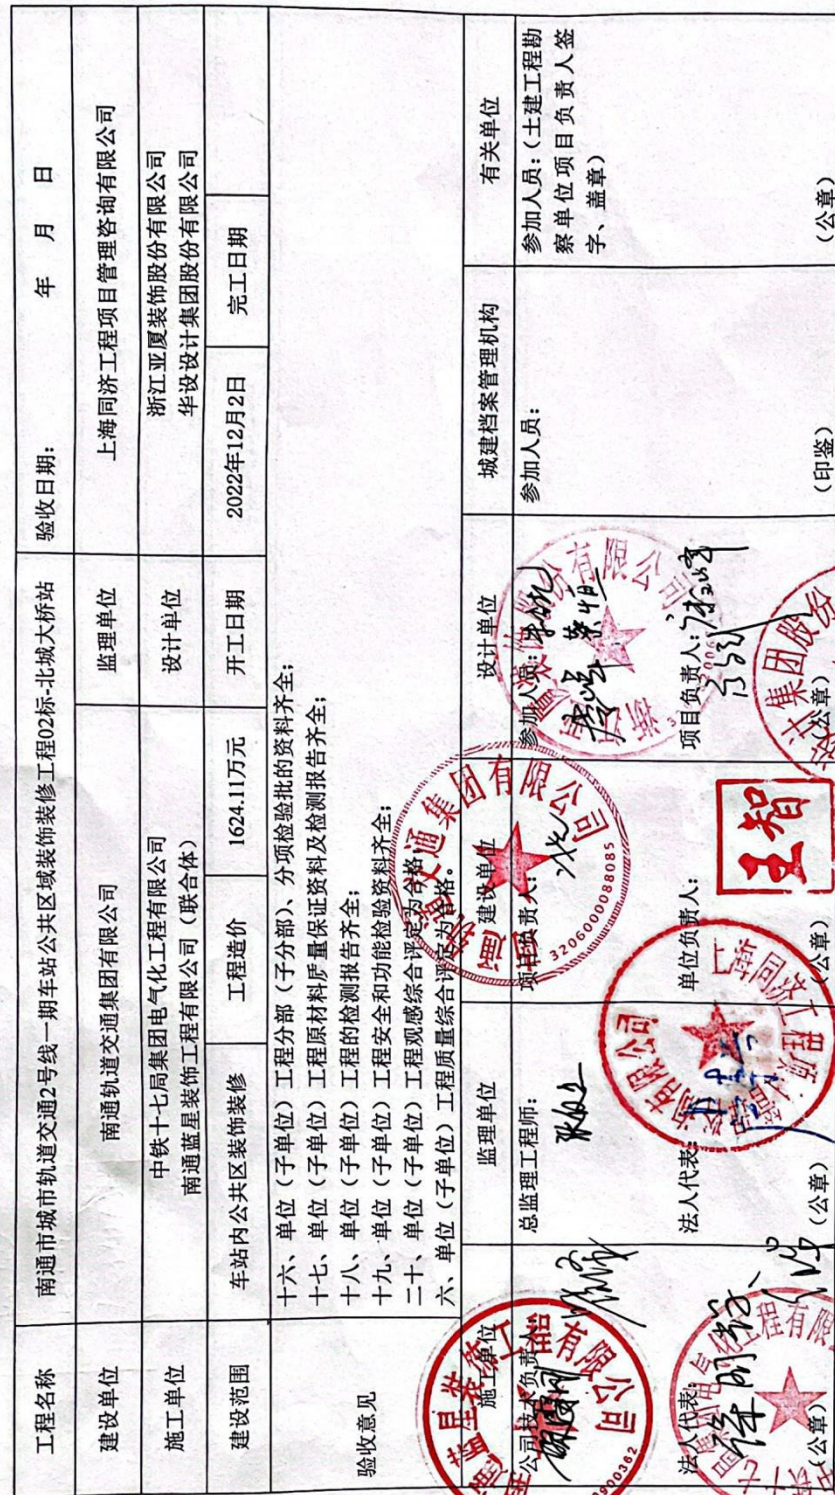 工程名称
南通市城市轨道交通2号线一期车站公共区域装饰装修工程02标-北城大桥站
验收日期: 年 月 日
建设单位
南通轨道交通集团有限公司
监理单位
上海同济工程项目管理咨询有限公司
施工单位
中铁十七局集团电气化工程有限公司
南通蓝星装饰工程有限公司（联合体）
设计单位
浙江亚厦装饰股份有限公司
华设设计集团股份有限公司
建设范围
车站内公共区装饰装修
工程造价
1624.11万元
开工日期
2022年12月2日
完工日期
验收意见
十六、单位（子单位）工程分部（子分部）、分项检验批的资料齐全；
十七、单位（子单位）工程原材料质量保证资料及检测报告齐全；
十八、单位（子单位）工程的检测报告齐全；
十九、单位（子单位）工程安全和功能检验资料齐全；
二十、单位（子单位）工程观感综合评定为合格
六、单位（子单位）工程质量综合评定为合格。
施工单位
监理单位
建设单位
设计单位
城建档案管理机构
有关单位
公司技术负责人:
总监理工程师:
项目负责人:
参加人员:
参加人员:
参加人员:（土建工程勘
察单位项目负责人签
字、盖章）
法人代表:
法人代表:
单位负责人:
项目负责人:
（公章）
（公章）
（公章）
（公章）
（印鉴）
（公章）
3206000088085